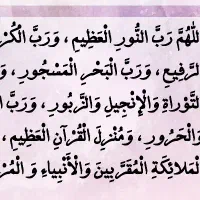 اللّٰهُمَّ رَبَّ النُّورِ الْعَظِيمِ ، وَرَبَّ الْكُرْ
الرَّفِيعِ ، وَرَبَّ الْبَحْرِ الْمَسْجُورِ ، وَ
التَّوْرَاةِ وَالْإِنْجِيلِ وَالزَّبُورِ ، وَرَبَّ ا
وَالْحَرُورِ ، وَمُنْزِلَ الْقُرْآنِ الْعَظِيمِ ،
الْمَلَائِكَةِ الْمُقَرَّبِينَ وَالْأَنْبِيَاءِ وَ الْمُرْ